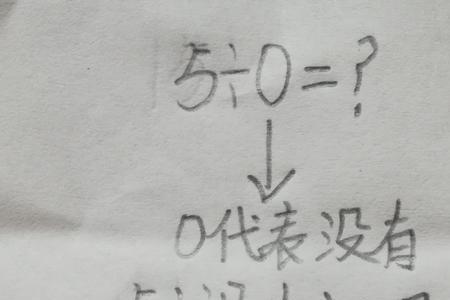 5÷0=?
0代表没有